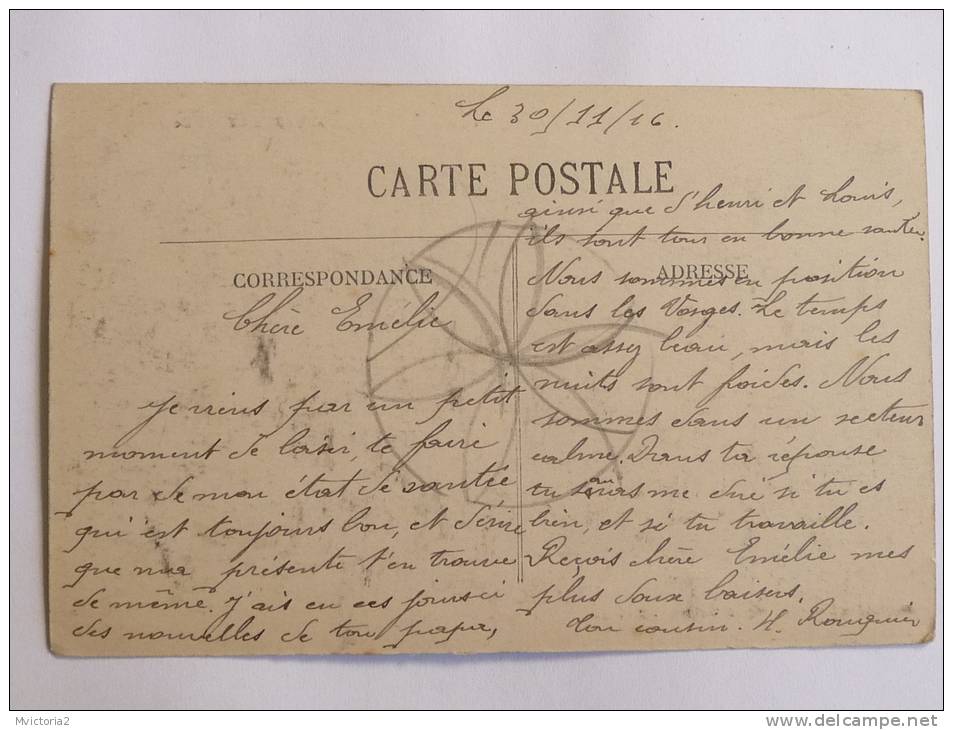 Le 30/11/16.
CARTE POSTALE
CORRESPONDANCE
Chère Emélie
Je viens par un petit
moment de loisir, te faire
par de mon état de santée
qui est toujours bon, et désire
que ma présente t'en trouve
de même. J'ais eu ces jours ci
des nouvelles de ton papa,
ainsi que d'henri et Louis,
ils sont tous en bonne santée.
ADRESSE
Nous sommes en position
dans les Vosges. Le temps
est assez beau, mais les
nuits sont foides. Nous
sommes dans un secteur
calme. Dans ta réponse
tu me diré si tu es
bien, et si tu travaille.
Reçois chère Emélie mes
plus doux baisers.
Ton cousin. H. Rouguier
Mvictoria2
www.delcampe.net